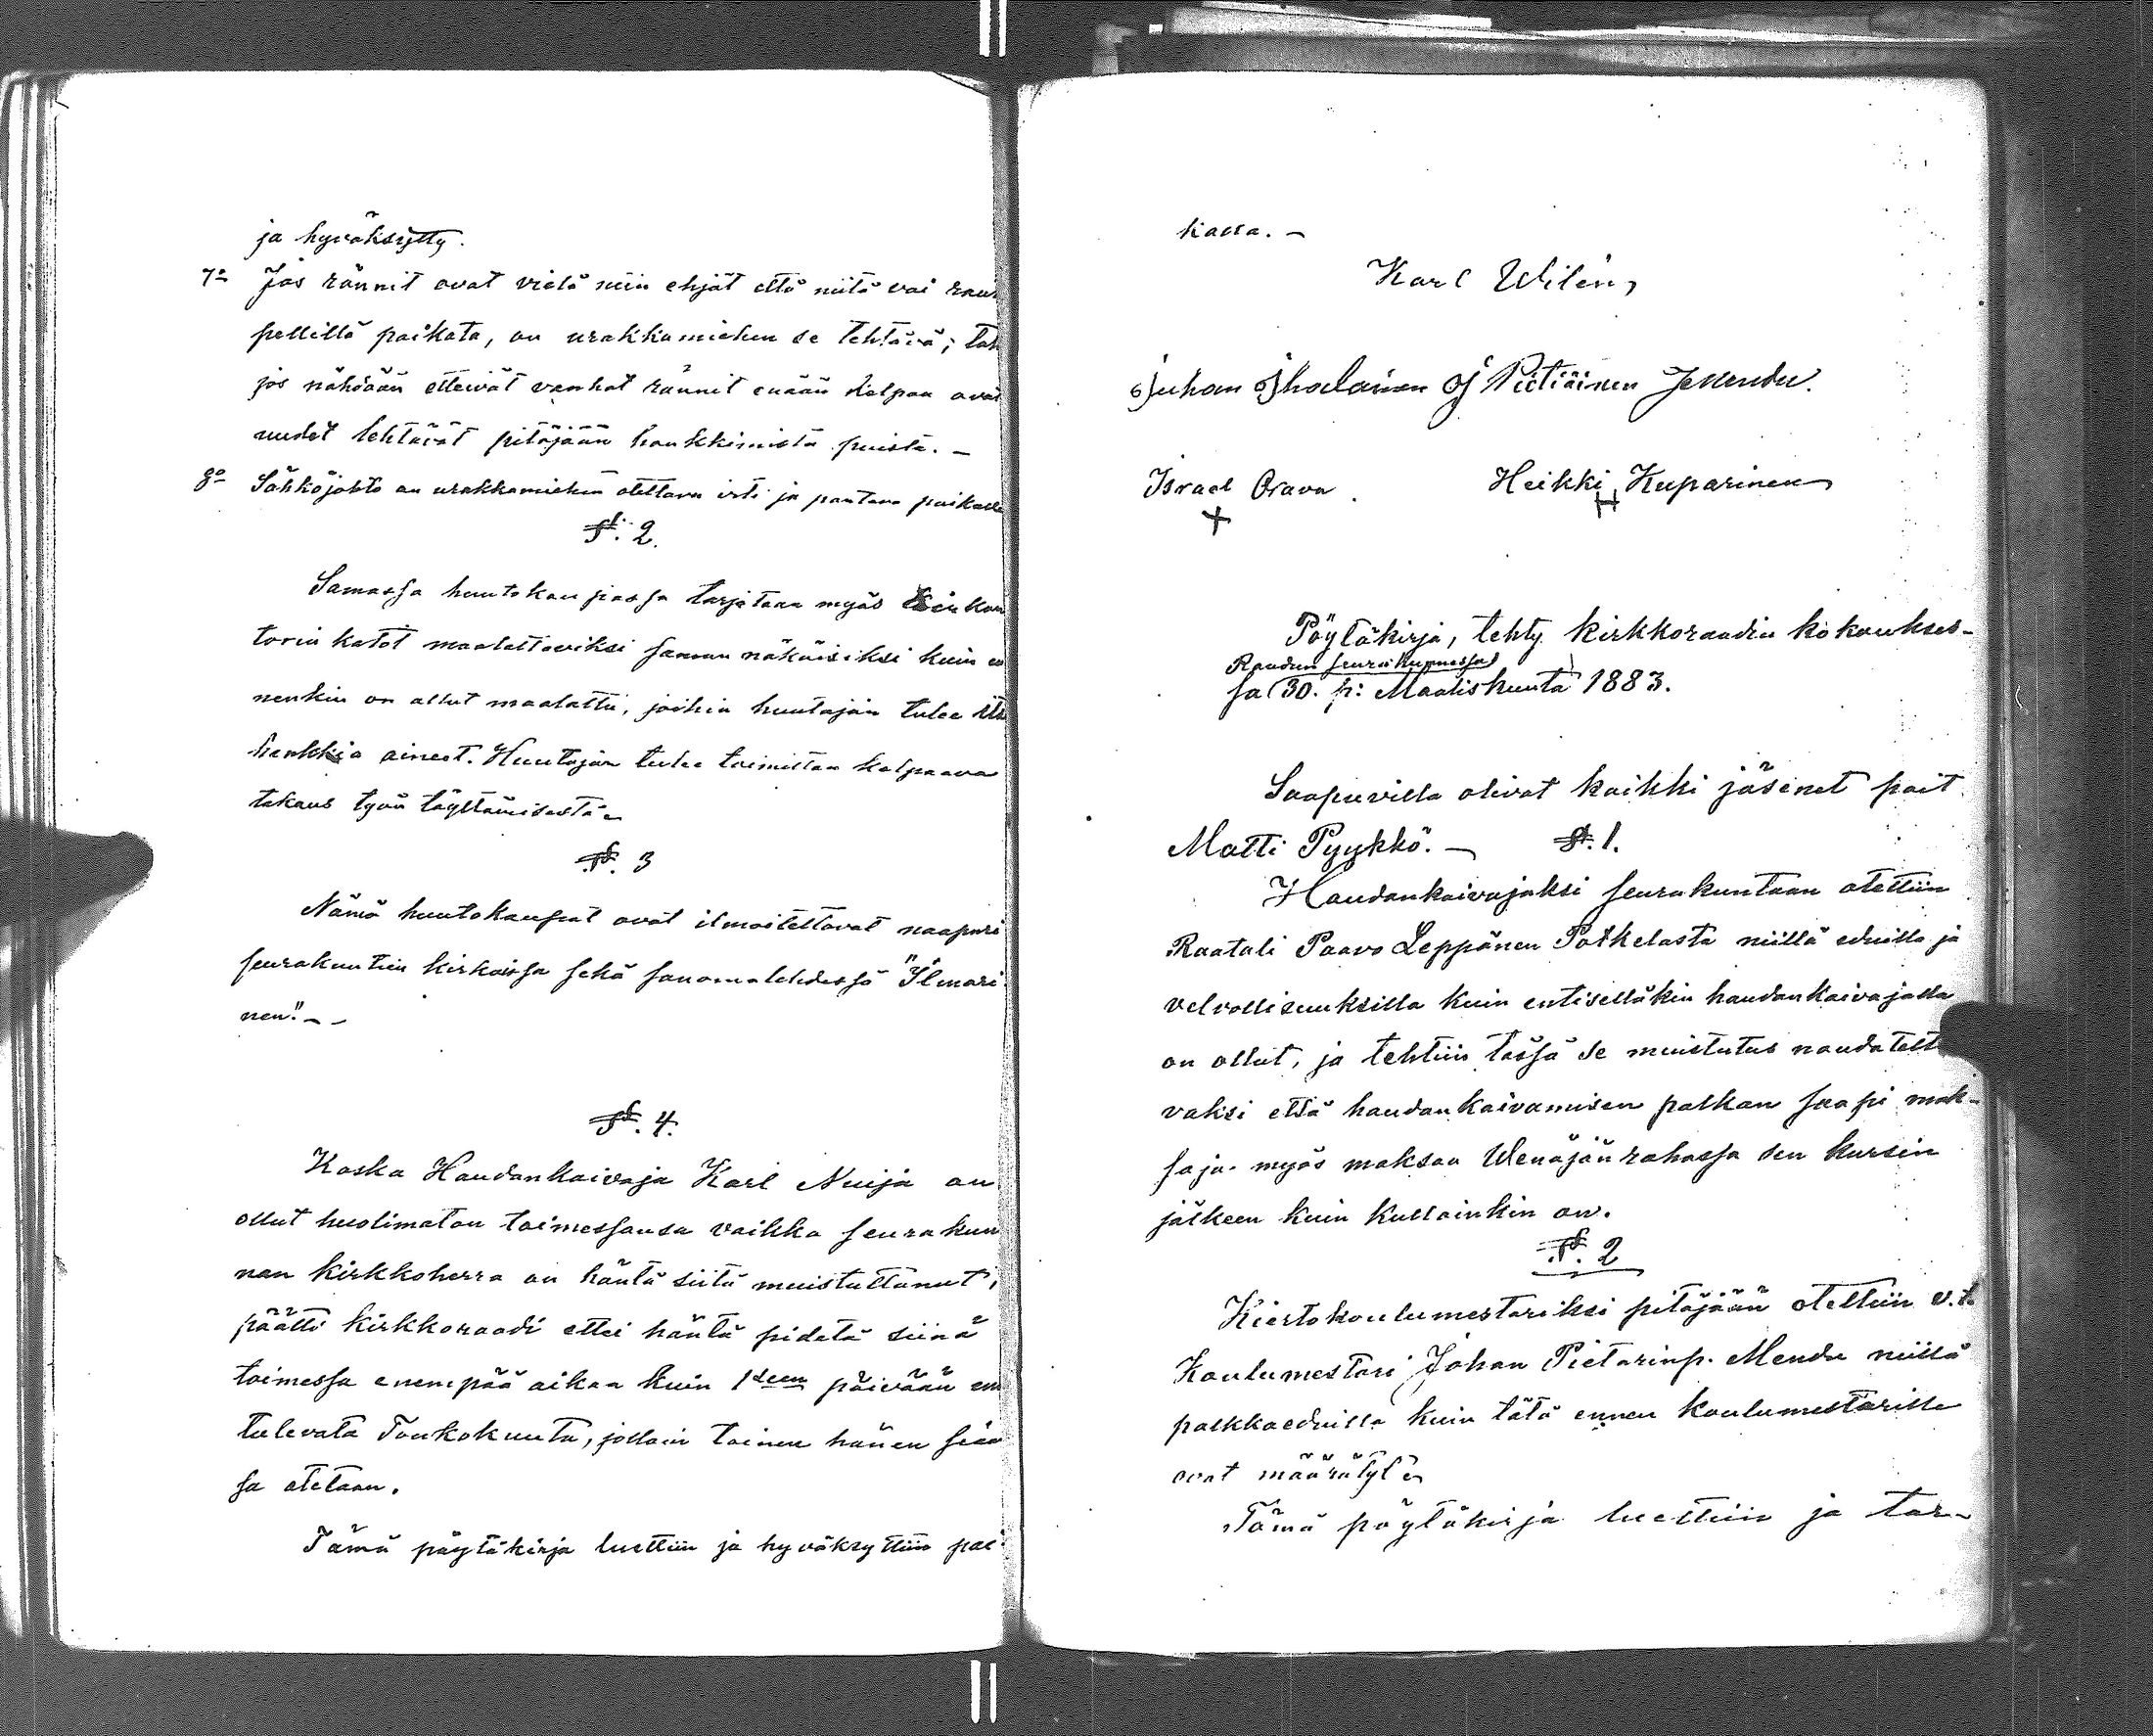 ja hyväksytty.
7o Jos rännit ovat vielä niin ehjät että niitä voi rau
pellillä paikata, on urakkamiehen se tehtävä; tah
jos nähdään etteivät vanhat rännit enään kelpaa ovat
uudet tehtävät pitäjään hankkimista puista. –
8o Sähköjohto on urakkamiehen otettava irti ja pantava paikalle
§. 2.
Samassa huutokaupassa tarjotaan myös
torin katot maalattaviksi saman näköisiksi kuin e
nenkin on ollut maalattu, joihin huutajan tulee its
hankkia aineet. Huutajan tulee toimittaa kelpaava
takaus työn täyttämisestä.
§. 3
Nämä huutokaupat ovat ilmoitettavat naapuri
seurakuntien kirkoissa sekä sanomalehdessä "Ilmari
nen". – –
§. 4.
Koska Haudankaivaja Karl Nuija on
ollut huolimaton toimessansa vaikka seurakun
nan kirkkoherra on häntä siitä muistuttanut;
päätti kirkkoraadi ettei häntä pidetä siinä
toimessa enempää aikaa kuin 1seen päivään en
tulevata Toukokuuta, jolloin toinen hänen siaa
sa otetaan.
Tämä pöytäkirja luettiin ja hyväksyttiin pai
kalla. –
Karl Wilén,
Juhan Ihalainen J Pietiäinen
Israel Orava. Heikki Kuparinen
+ H
Pöytäkirja, tehty kirkkoraadin kokoukses-
Raudun seurakunnassa
sa 30. p: Maaliskuuta 1883.
Saapuvilla olivat kaikki jäsenet pait
Matti Pyykkö. – §. 1.
Haudankaivajaksi seurakuntaan otettiin
Raatali Paavo Leppänen Potkelasta niillä eduilla ja
velvollisuuksilla kuin entiselläkin haudankaivajalla
on ollut, ja tehtiin tässä se muistutus noudatett
vaksi että haudankaivamisen palkan saapi mak-
saja myös maksaa Wenäjän rahassa sen kursin
jälkeen kuin kulloinkin on.
§. 2
Kiertokoulumestariksi pitäjään otettiin v.t.
Koulumestari Johan Pietarinp. Mendu niillä
palkkaeduilla kuin tätä ennen koulumestarille
ovat määrätyt.
Tämä pöytäkirja luettiin ja tar-